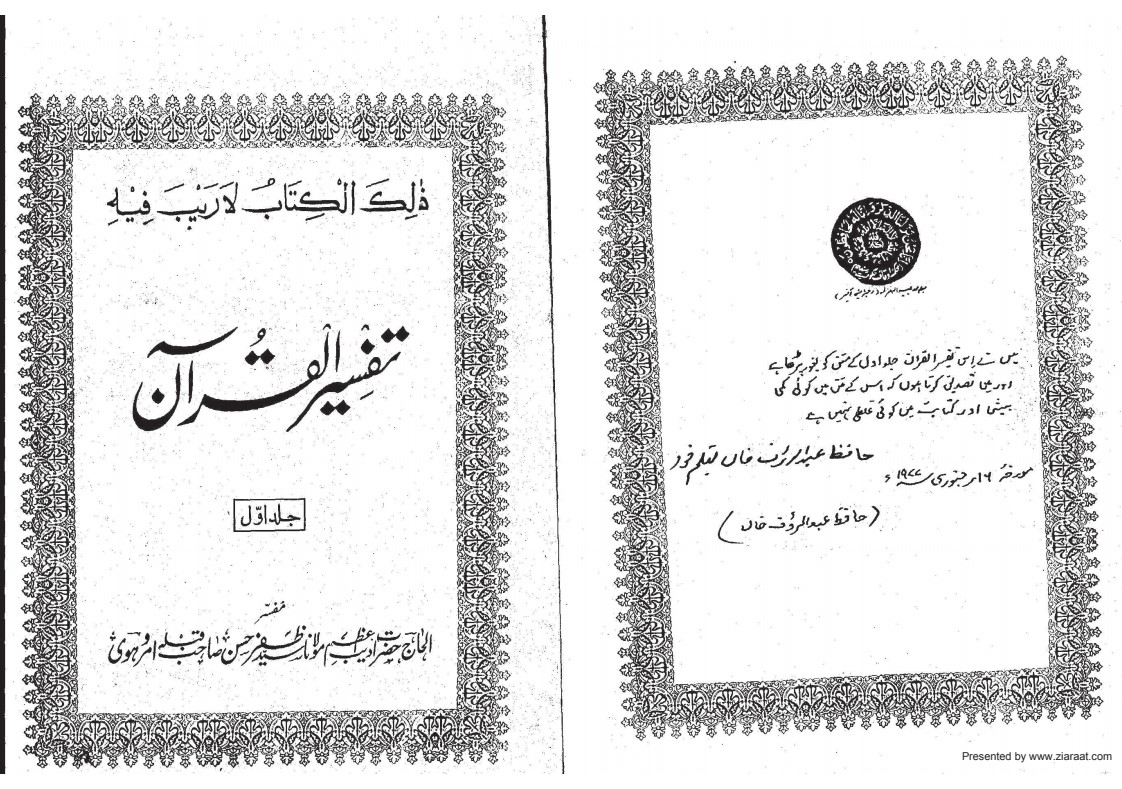 ذٰلِكَ الْكِتَابُ لَا رَيْبَ فِيْهِ
تفسیر القرآن
جلد اوّل
مفسّر
الحاج حضرت ادیب اعظم مولانا سید ظفر حسن صاحب قبلہ امروہوی
میں نے اِس تفسیر القرآن جلد اول کے متن کو بغور پڑھا ہے
اور میں تصدیق کرتا ہوں کہ اس کے متن میں کوئی کمی
بیشی اور کتابت میں کوئی غلطی نہیں ہے
حافظ عبدالرؤف خاں بقلم خود
مورخہ ۱۶ر جنوری ۱۹۷۷ء
(حافظ عبدالرؤف خاں)
Presented by www.ziaraat.com